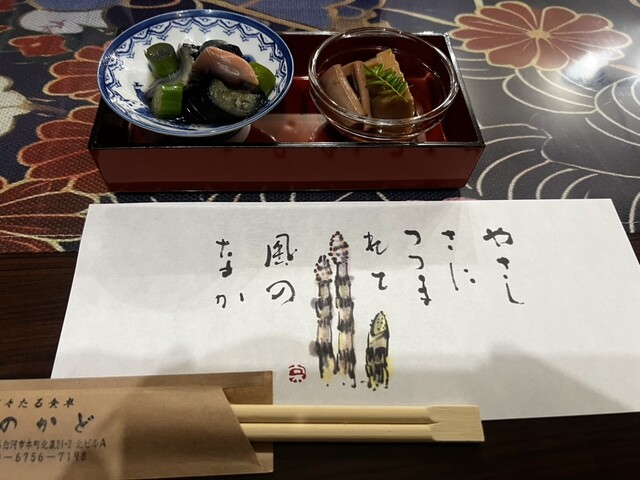 やさし
さに
つつま
れて
風の
なか
々たる食卓
のかど
白河市本町北裏31-2 北ビルA
-6756-7198